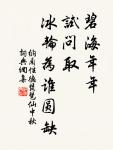 碧海年年
試問取
冰輪為誰圓缺
納蘭性德琵琶仙中秋